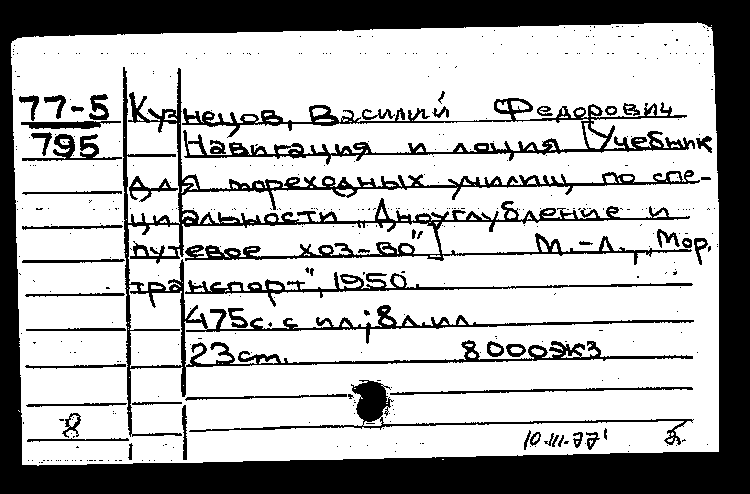 77-5 Кузнецов, Василий Федорович
795 Навигация и лоция [Учебник
для мореходных училищ по спе-
циальности „Дноуглубление и
путевое хоз-во"]. М.-Л., „Мор.
транспорт", 1950.
475с. с ил.; 8л. ил.
23 ст. 8000экз
8 10-III-77